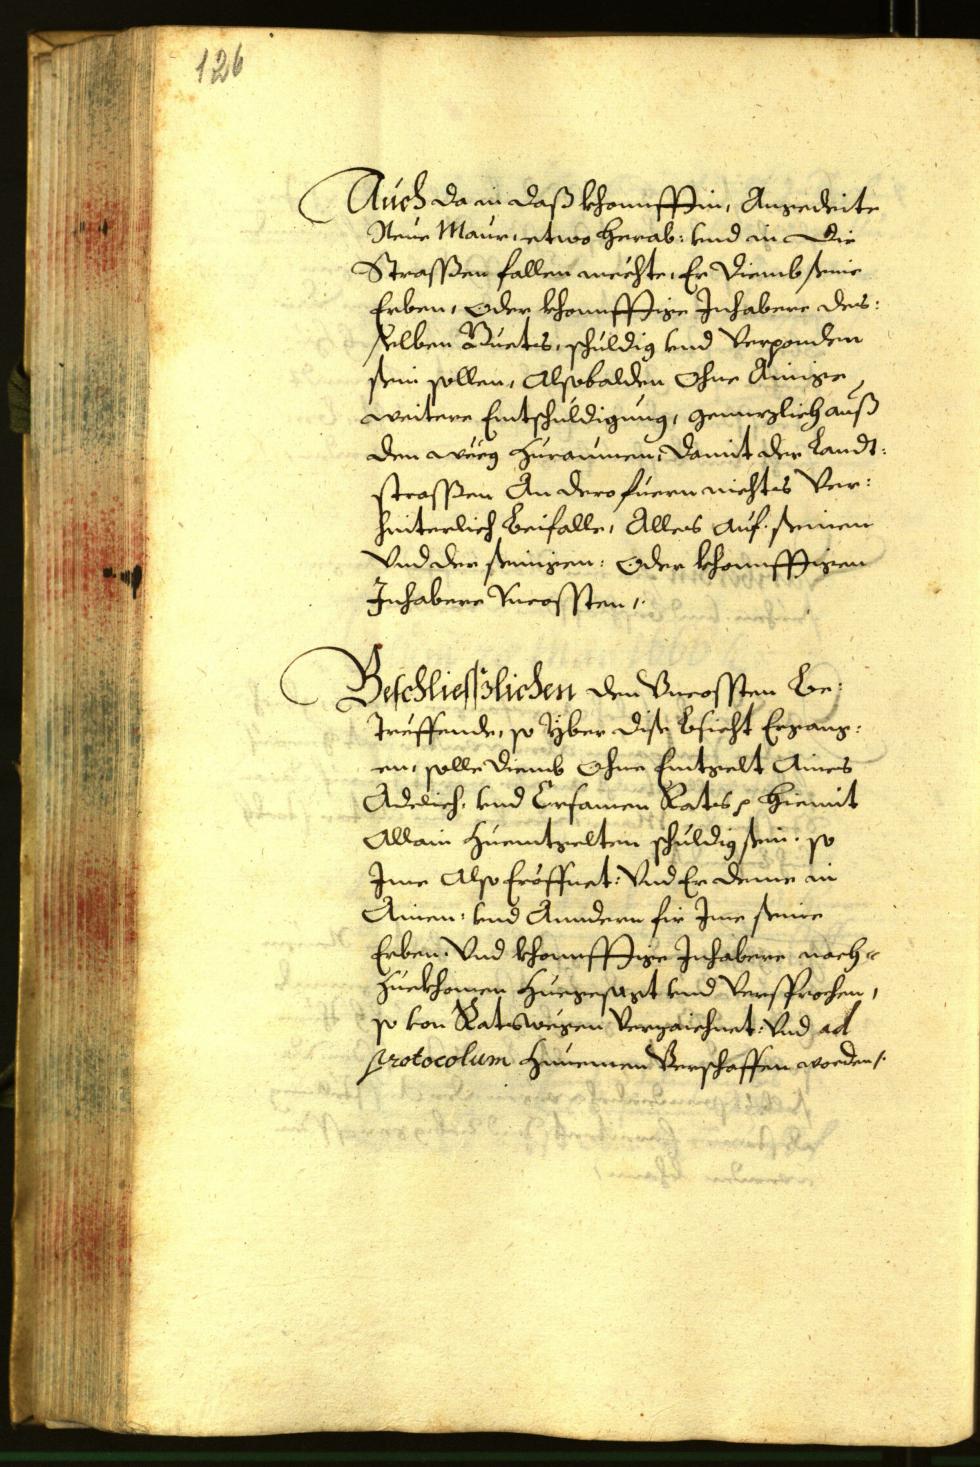 126
Auch da in daß khonnfftin, Angedeite
Neue Maur, etwo herab: und in die
Strassen fallen mechte, Er Diemb seine
Erben, Oder khonnfftige Inhabere des:
selben Guets, schuldig und verponden
sein sollen, Alsobalden Ohne Ainige
weitere Entschuldigung, genzlich auß
den weeg zuraumen, damit der Landt:
strassen An dero fuern nichts ver:
hinterlich beifalle, Alles auf seinen
und der seinigen: Oder khonnfftigen
Inhabere Uncossten,
Beschliesslichen den Uncossten be:
treffende, so yber dise bsicht Ergang:
en, solle Diemb Ohne Entgelt Aines
Adelich: und Ersamen Rats hiemit
Allain zuentgelten schuldig sein. so
Ime Also Eröffnet: Und Er deme in
Ainen: und Anndern fir Ime seine
Erben: Und khonnfftige Inhabere nach=
zuekhomen zuegesagt und Versprochen,
so von Ratswegen verzaichnet: und ad
protocolum zunemen Verschaffen worden